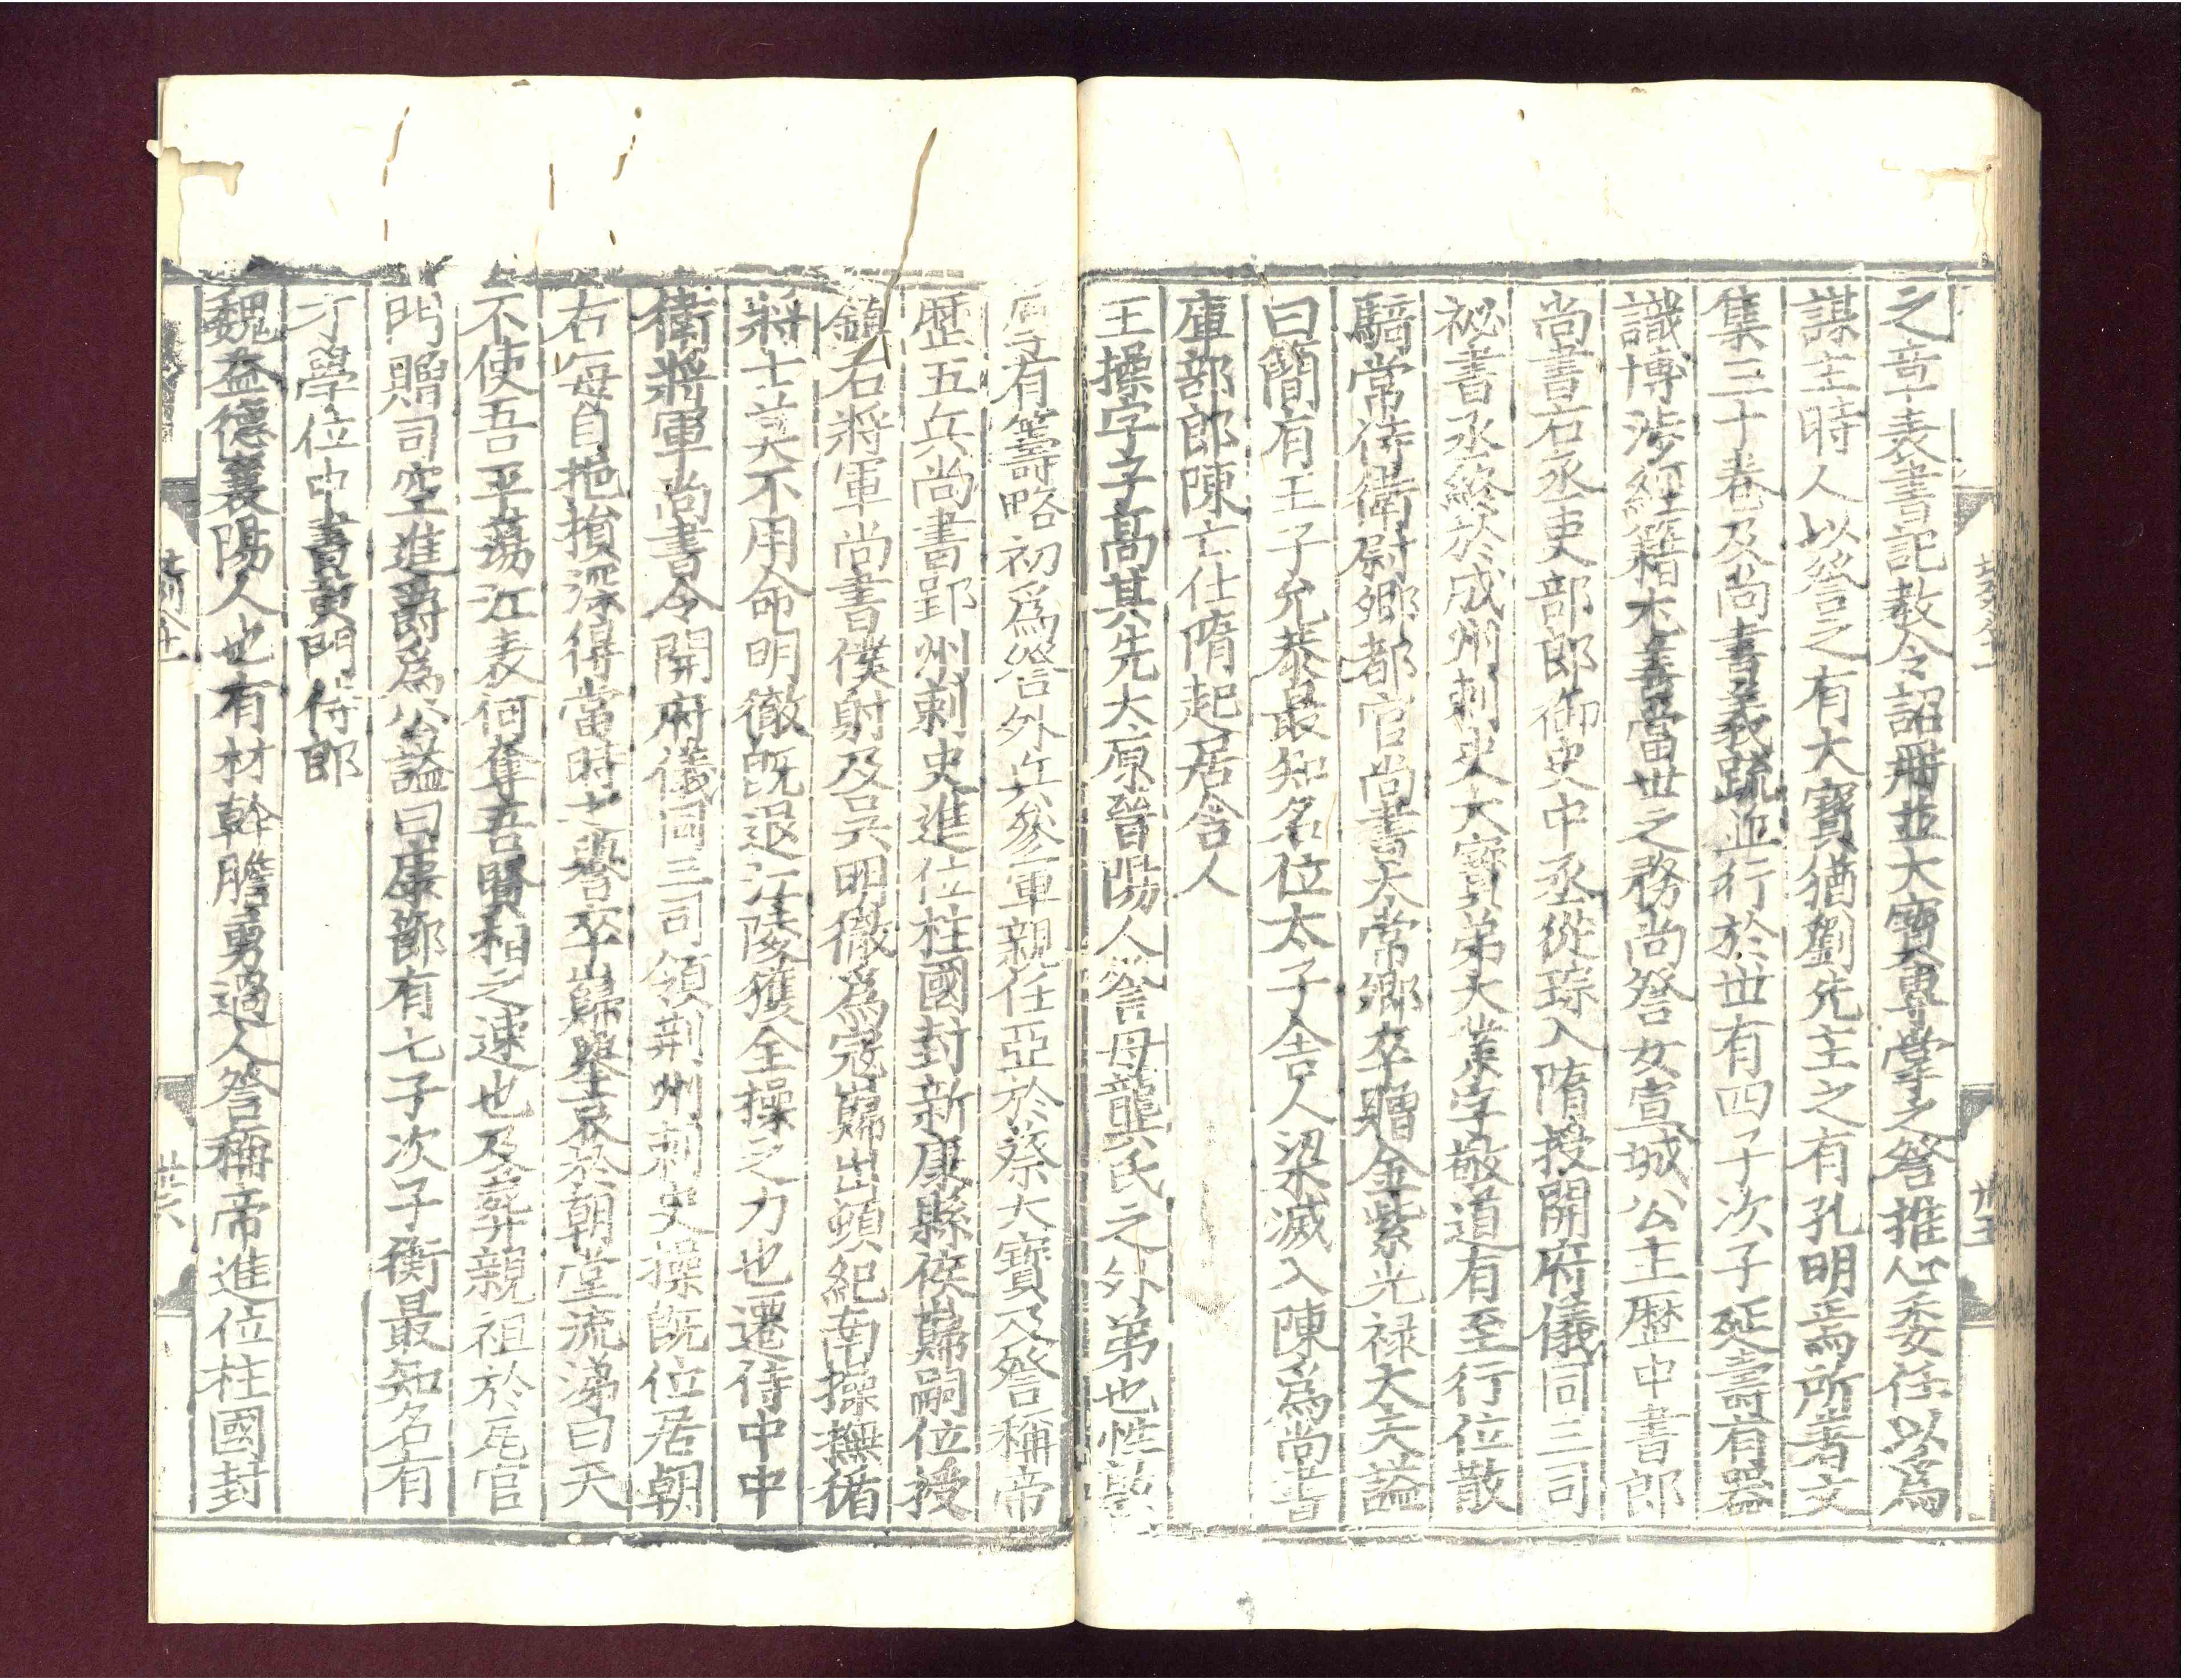 之章表書記教令詔冊並大寶專掌之詧推心委任以爲
謀主時人以詧之有大寶猶劉先主之有孔明焉所著文
集三十卷及尚書義䟽並行於世有四子次子延壽有器
識博涉經籍尤善當世之務尚詧女宣城公主歷中書郎
尚書右丞吏部郎御史中丞從琮入隋授開府儀同三司
祕書丞終於成州刺史大寶弟大業字敬道有至行位散
騎常侍衛尉卿都官尚書太常卿卒贈金紫光禄大夫謚
曰簡有五子允恭最知名位太子舎人梁滅入陳爲尚書
庫部郎陳亡仕隋起居舎人
王操字子髙其先太原晉陽人詧母龔氏之外弟也性敦
厚有籌略初爲詧外兵參軍親任亞於蔡大寶及詧稱帝
歷五兵尚書郢州刺史進位柱國封新康縣侯巋嗣位授
鎮右將軍尚書僕射及吳明徹爲寇巋出頓紀南操撫循
將士莫不用命明徹旣退江陵獲全操之力也遷侍中中
衛將軍尚書令開府儀同三司領荆州刺史操旣位居朝
右每自挹損深得當時之譽卒巋舉哀於朝堂流涕曰天
不使吾平蕩江表何奪吾賢相之速也及葬親祖於瓦官
門贈司空進爵爲公謚曰康節有七子次子衡最知名有
才學位中書黄門侍郎
魏益德襄陽人也有材幹膽勇過人詧稱帝進位柱國封